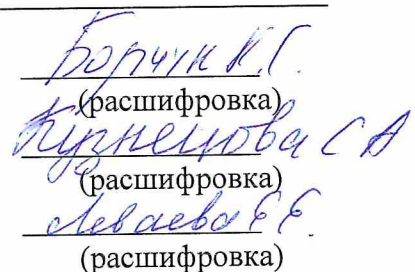 Борчук К.Г.
(расшифровка)
Кузнецова С А
(расшифровка)
Леваева Е Е.
(расшифровка)